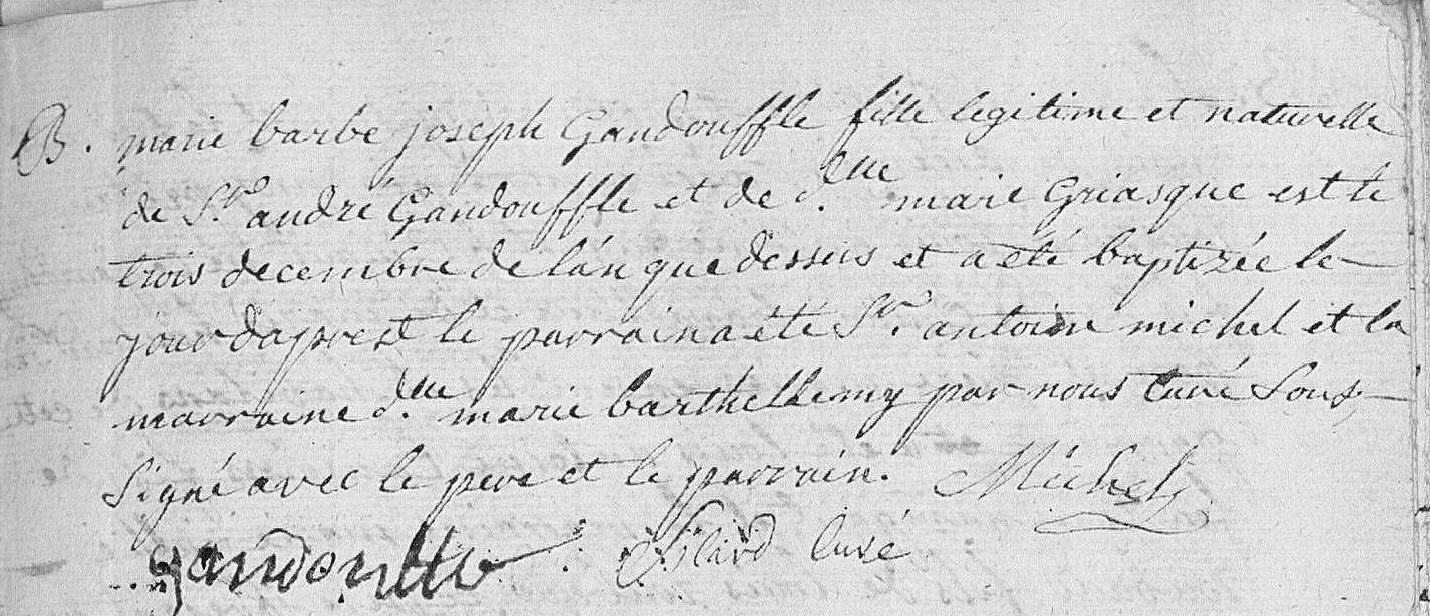 B. marie barbe joseph Gandouffle fille legitime et naturelle
de Sr. andré Gandouffle et de dlle marie Griasque est le
trois decembre de l'an que dessus et a eté baptizée le
jour daprest le parrain a été Sr. antoine michel et la
marraine dlle marie barthellemy par nous Curé Sous,
Signé avec le pere et le parrain. Michel
gandouffle Curé